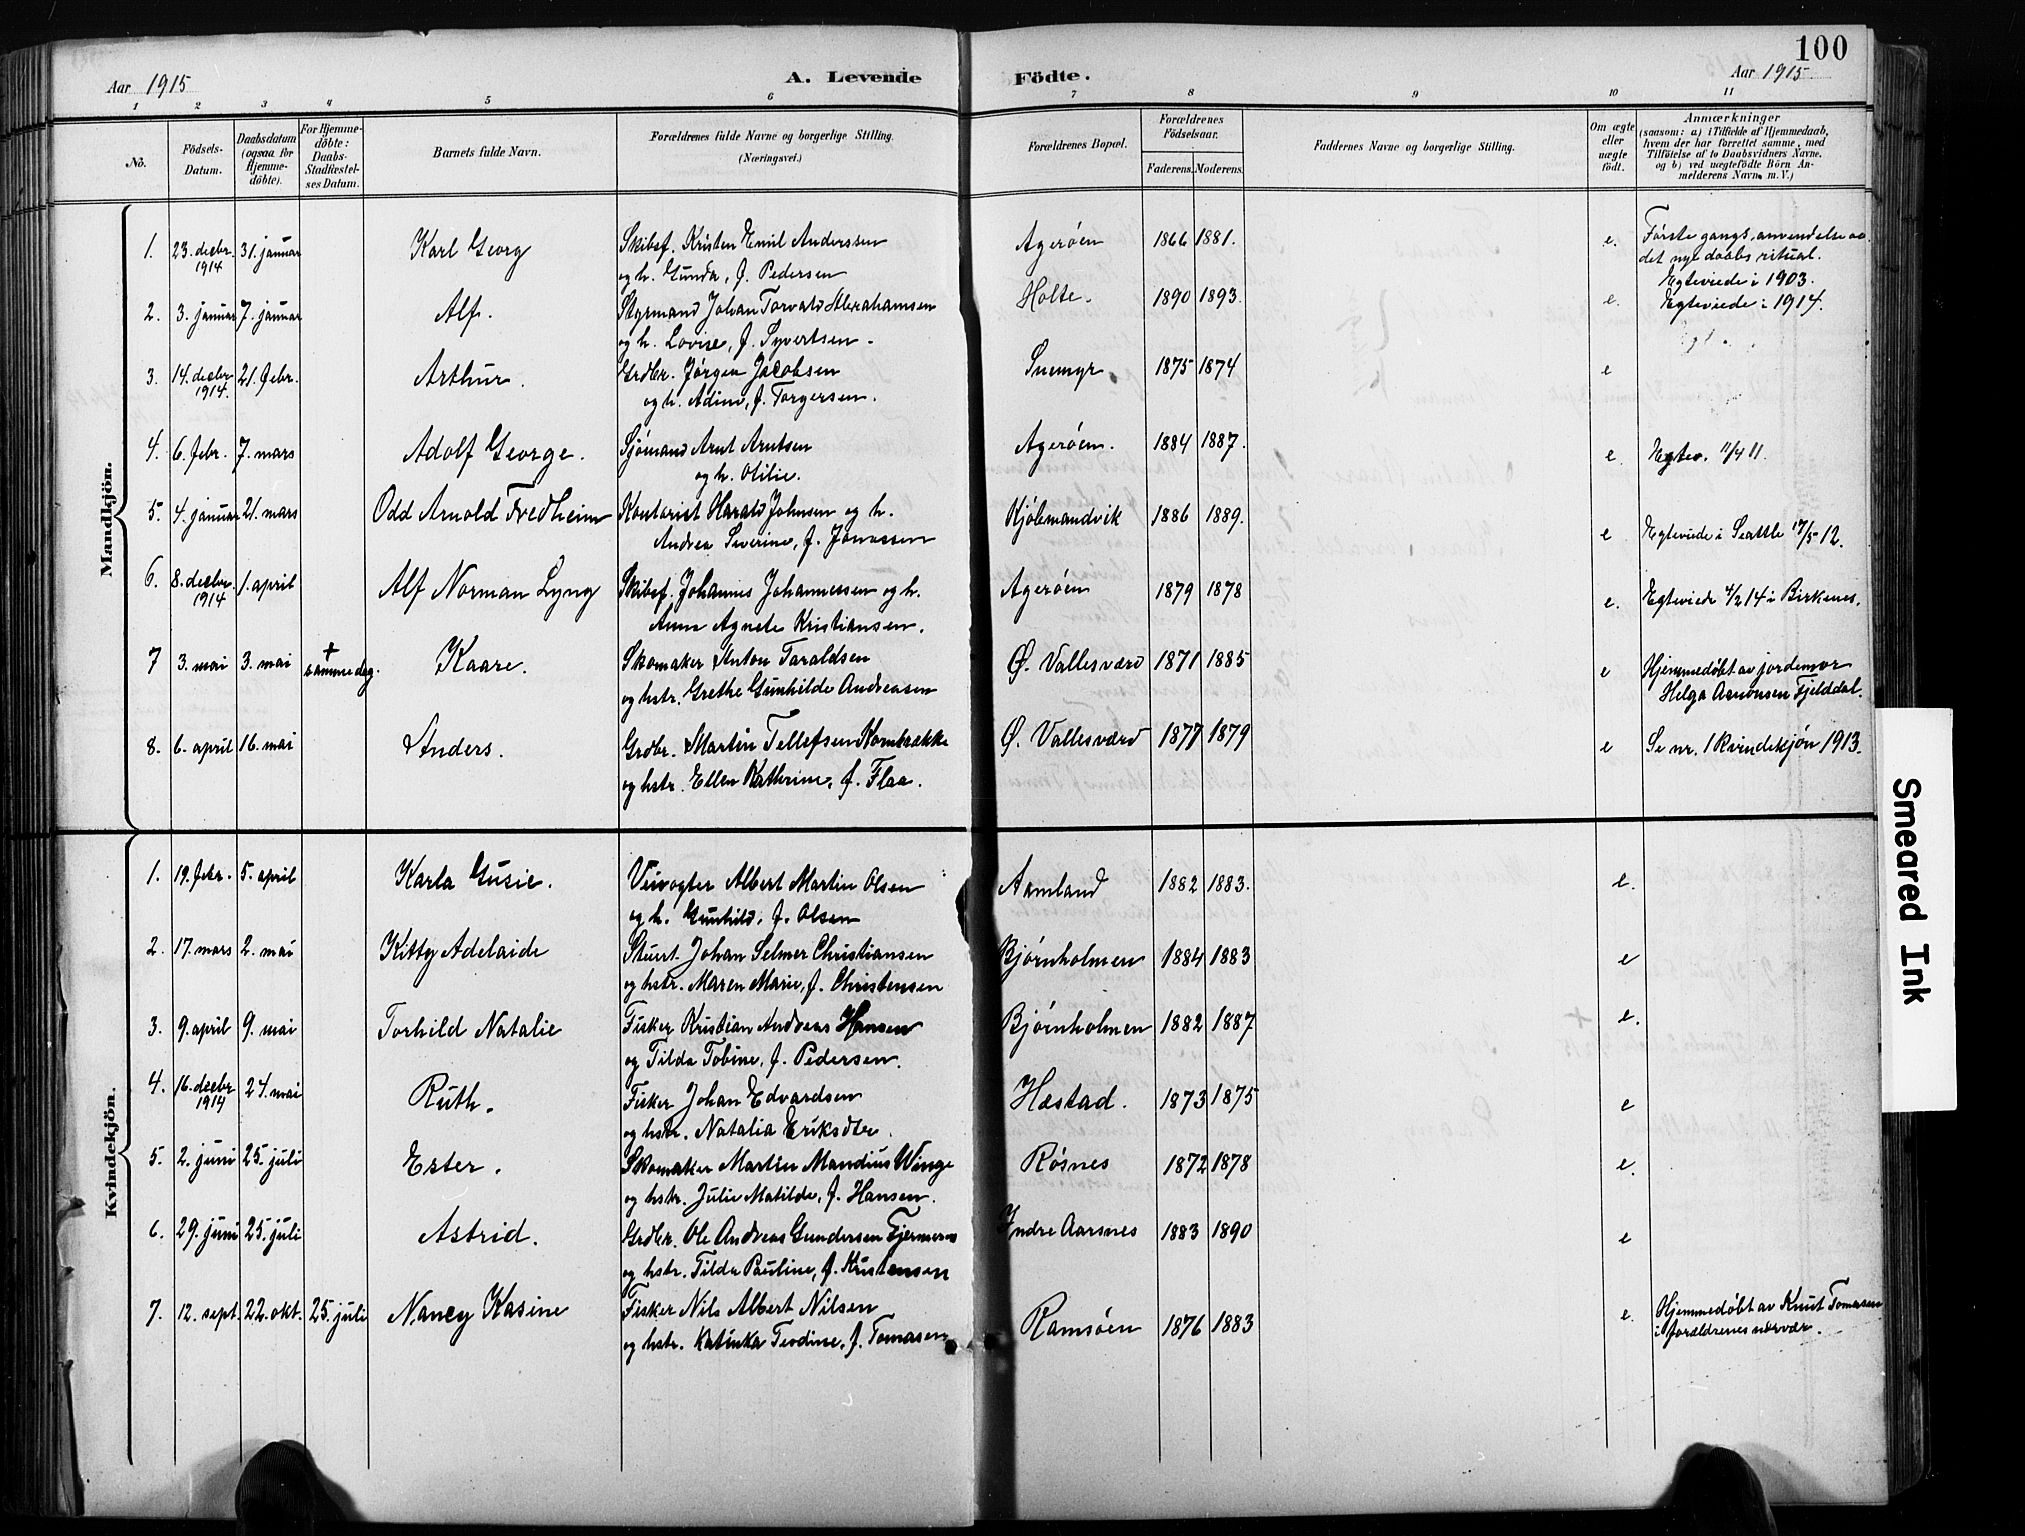 100
Aar 1915
A. Levende Födte.
Aar 1915
1 2 3 4 5 6 7 8 9 10 11
No. Födsels-Datum. Daabsdatum (ogsaa for Hjemme-döbte). For Hjemme-döbte: Daabs-Stadfæstel-ses Datum. Barnets fulde Navn. Forældrenes fulde Navne og borgerlige Stilling. (Næringsvei.) Forældrenes Bopæl. Forældrenes Födselsaar. Faderens. Moderens. Faddernes Navne og borgerlige Stilling. Om ægte eller uægte födt.
Anmærkninger
(saasom: a) i Tilfælde af Hjemmedaab,
hvem der har forrettet samme, med
Tilföielse af to Daabsvidners Navne,
og b) ved uægtefödte Börn An-
melderens Navn m. V.)
Mandkjön.
1. 23. decbr. 1914 31. januar Karl Georg Skibsf. Kristen Emil Anderssen Agerøen 1866 1881. e. Første gangs anvendelse av
og h. Gunda, f. Pedersen det nye daabsritual.
Egteviede i 1903.
2. 3. januar 7. januar Alf. Styrmand Johan Torvald Abrahamsen Holte. 1890 1893. e. Egteviede i 1914.
og h. Lovise, f. Syvertsen.
3. 14. decbr. 1914. 21. febr. Arthur. Grdbr. Jørgen Jacobsen Snemyr 1875 1874 e
og h. Adine, f. Torgersen.
4. 6. febr. 7. mars Adolf George. Sjømand Arnt Arntsen Agerøen. 1884 1887. e. Egtev. 11/4 11.
og h. Otilie.
5. 4. januar 21. mars Odd Arnold Fredheim Kontorist Harald Johnsen og h. Kjøbmandvik 1886 1889. e Egteviede i Seattle 17/5-12.
Andrea Severine, f. Jonassen
6. 8. decbr. 1914 1. april Alf Norman Lyng Skibsf. Johannes Johannessen og h. Agerøen 1879 1878 e. Egteviede 4/2 14 i Birkenes.
Anna Agnete Kristiansen.
7 3. mai 3. mai + samme dag. Kaare. Skomaker Anton Taraldsen Ø. Vallesværd 1871 1885 e Hjemmedøbt av jordemor
og hstr. Grethe Gunhilde Andreasen Helga Aaronsen Fjelddal.
8. 6. april 16. mai Anders. Grdbr. Martin Tellefsen Kornbrække Ø. Vallesværd 1877 1879 e Se nr. 1 Kvindekjøn 1913.
og hstr. Ellen Kathrine, f. Flaa.
Kvindekjön.
1. 19. febr. 5. april Karla Gusie. Veivogter Albert Martin Olsen Aamland 1882 1883. e.
og h. Gunhild, f. Olsen
2. 17. mars 2. mai Kitty Adelaide Stuert Johan Selmer Christiansen Bjørnholmen 1884 1883 e
og hstr. Maren Marie, f. Christensen
3. 9. april 9. mai Torhild Natalie Fisker Kristian Andreas Hansen Bjørnholmen 1882 1887 e.
og Tilda Tobine, f. Pedersen.
4. 16. decbr 1914 24. mai Ruth. Fisker Johan Edvardsen Hæstad. 1873 1875 e
og hstr. Natalia Eriksdtr.
5. 2. juni 25. juli Ester. Skomaker Martin Mandius Winge Røsnes 1872 1878 e.
og hstr. Julie Matilde, f. Hansen.
6. 29. juni 25. juli Astrid. Grdbr. Ole Andreas Gundersen Fjermeros Indre Aarsnes 1883 1890 e
og hstr. Tilda Pauline, f. Kristensen
7. 12. sept. 22. okt. 25. juli Nancy Kasine Fisker Nils Albert Nilsen Ramsøen 1876 1883 e. Hjemmedøbt av Knut Tomasen
og hstr. Katinka Teodine, f. Tomasen i forældrenes nærvær.
Smeared Ink